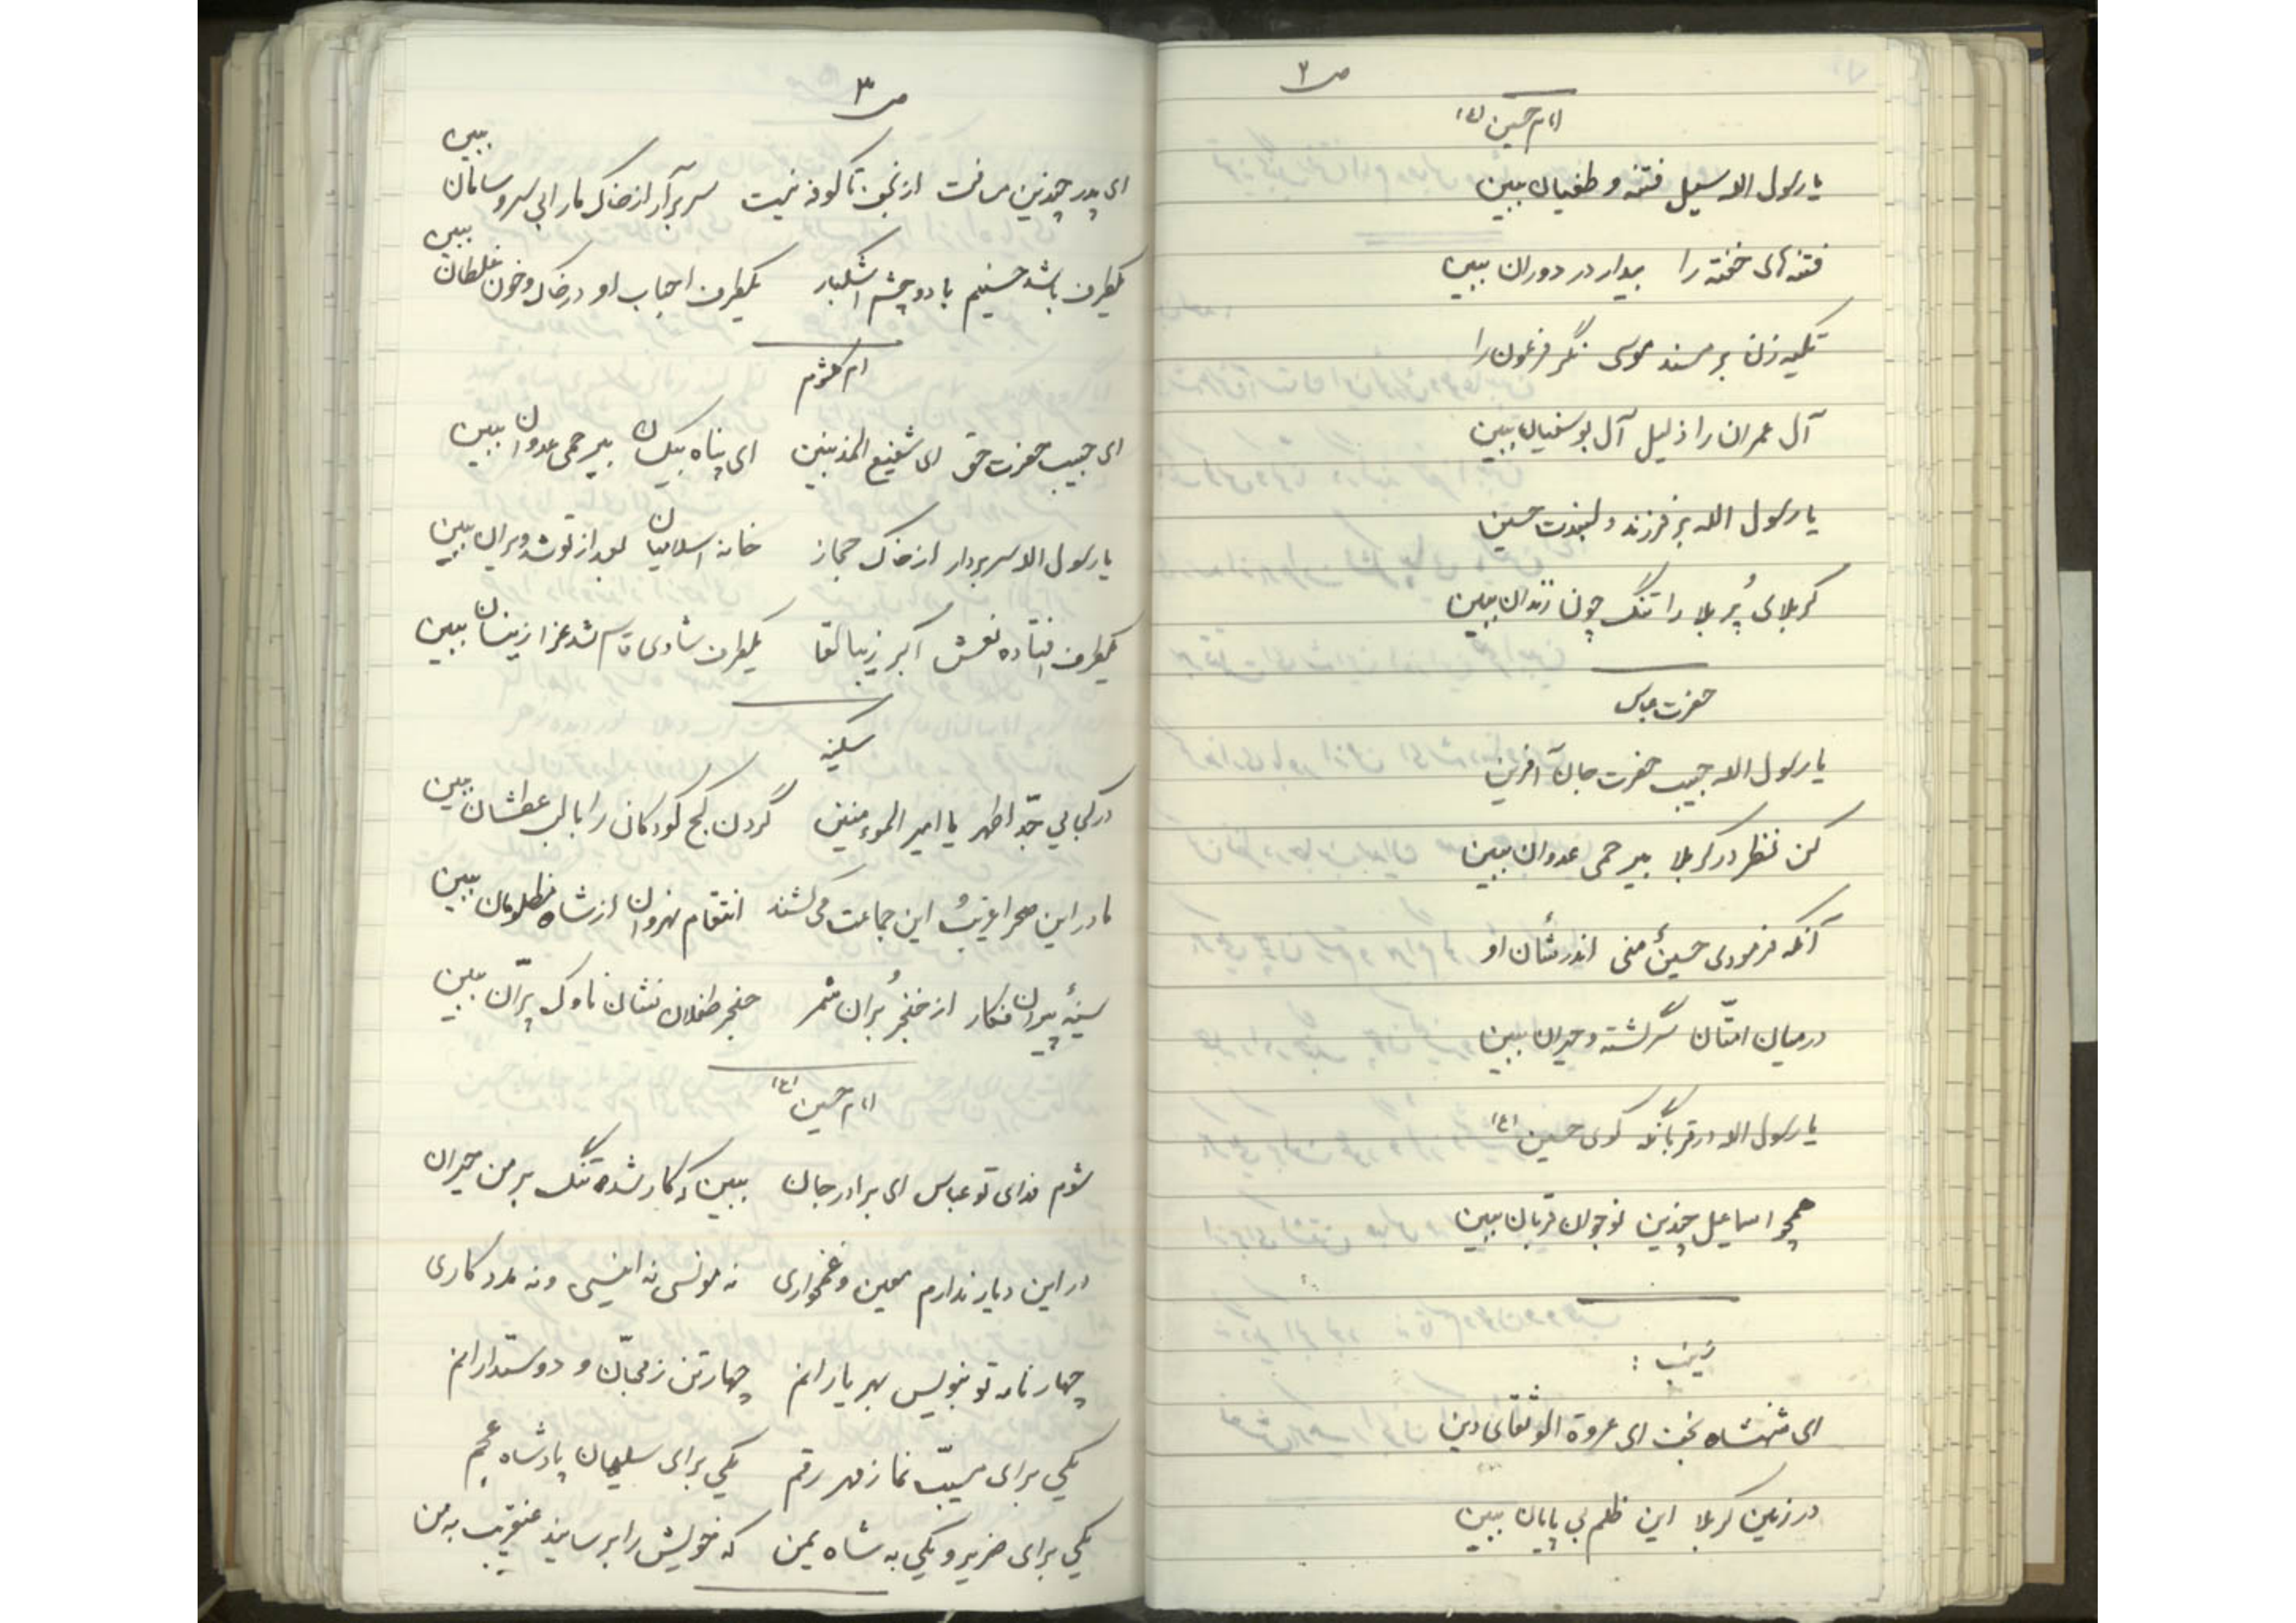 ص ۲
امام حسین (ع)
یا رسول الله سیل فتنه و طغیان ببین
فتنه های خفته را بیدار در دوران ببین
تکیه زن بر مسند موسی نگر فرعون را
آل عمران را ذلیل آل بوسفیان ببین
یا رسول الله بر فرزند دلبندت حسین
کربلای پُر بلا را تنگ چون زندان ببین
حضرت عباس
یا رسول الله حبیب حضرت جان آفرین
کن نظر در کربلا بیرحمی عدوان ببین
آنکه فرمودی حسینُ منی اندر شأن او
در میان امتّان سرگشته و حیران ببین
یا رسول الله در قربانگه کوی حسین (ع)
همچو اسماعیل چندین نوجوان قربان ببین
زینب :
ای شهنشاه نجف ای عروة الوثقای دین
در زمین کربلا این ظلم بی پایان ببین
ص ۳
ای پدر چندین مسافت از نجف تا کوفه نیست سر برآر از خاک ما را بی سر و سامان ببین
یکطرف باشد حسینم با دو چشم اشکبار یکطرف احباب او در خاک و خون غلطان ببین
ام کلثوم
ای حبیب حضرت حق ای شفیع المذنبین ای پناه بیکسان بیرحمی عدوان ببین
یا رسول الله سر بردار از خاک حجاز خانه اسلامیان بعد از تو شد ویران ببین
یکطرف افتاده نعش اکبر زیبا لقا یکطرف شادی قاسم شد عزا زینسان ببین
سکینه
در کجایی جدّ اطهر یا امیر الموءمنین گردن کج کودکان را با لب عطشان ببین
ما در این صحرا غریبُ این جماعت می کشند انتقام نهروان از شاه مظلومان ببین
سینهٔ پیران فکار از خنجر بُران شمر حنجر طفلان نشان ناوک پرّان ببین
امام حسین (ع)
شوم فدای تو عباس ای برادر جان ببین که کار شده تنگ بر من حیران
در این دیار ندارم معین و غمخواری نه مونسی نه انیسی و نه مددکاری
چهار نامه تو بنویس بهر یارانم چهار تن ز محبّان و دوستدارانم
یکی برای مسیّب نما ز مهر رقم یکی برای سلیمان پادشاه عجم
یکی برای ضریر و یکی به شاه یمن که خویش را برسانید عنقریب به من